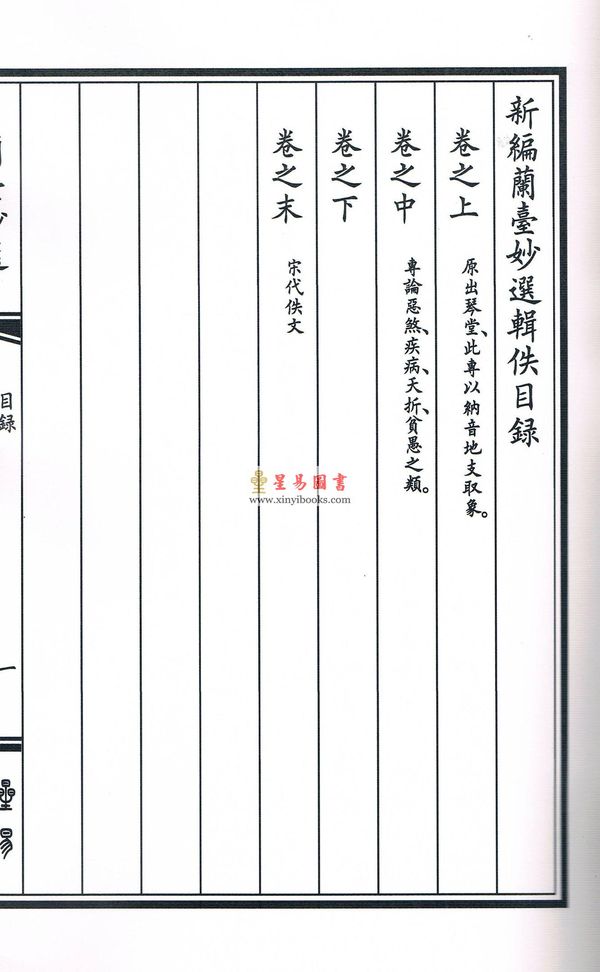 新編蘭臺妙選輯佚目録
卷之上　原出琴堂、此專以納音地支取象。
卷之中　專論惡煞、疾病、夭折、貧愚之類。
卷之下
卷之末　宋代佚文
目録
一
星易
星易圖書
www.xinyibooks.com